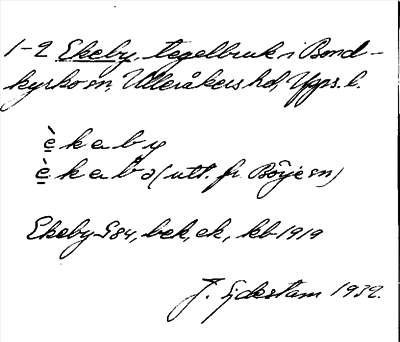 1-2 Ekeby, tegelbruk i Bond-
kyrko sn, Ulleråkers hd, Upps. l.
è̱ k e b y
è̱ k e b ə (utt. fr. Börje sn)
Ekeby S84, bek, ek, kb 1919
J. Ejdestam 1932.